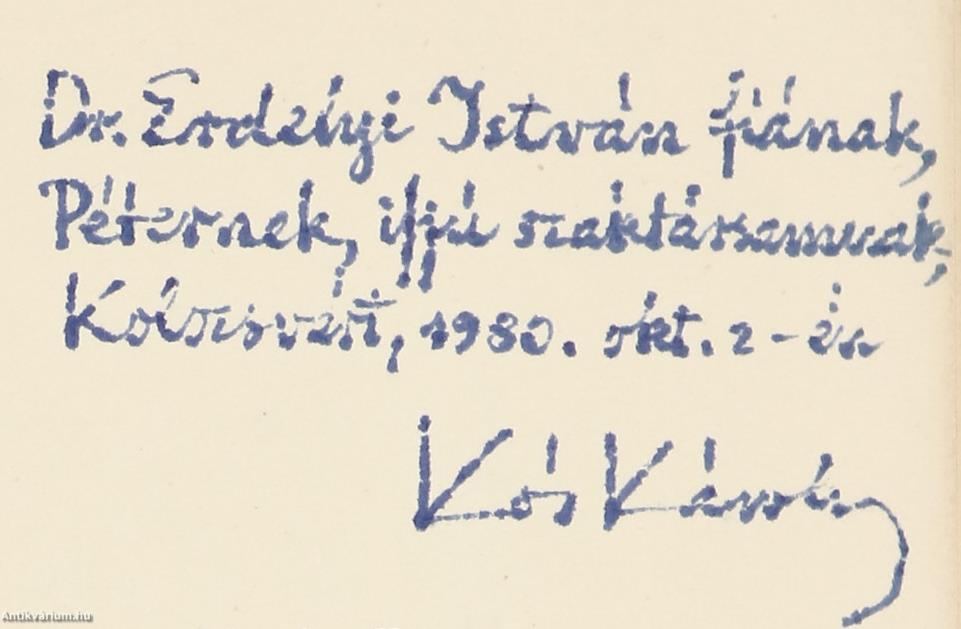 Dr. Erdélyi István fiának,
Péternek, ifjú szaktársamnak,
Kolozsvárt, 1980. okt. 2-én
Kós Károly
Antikvárium.hu